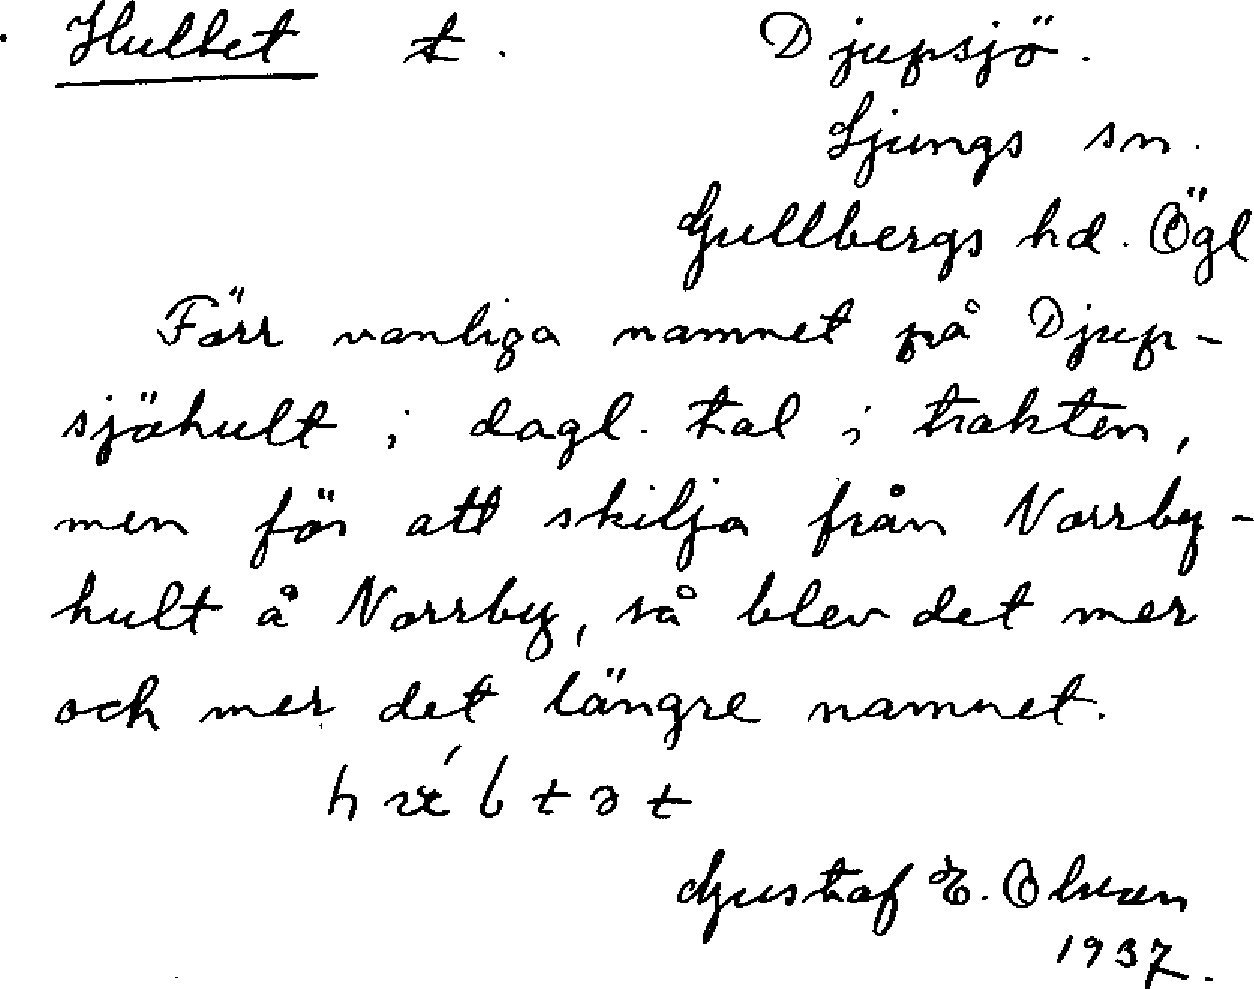 Hultet t. Djupsjö.
Ljungs sn.
Gullbergs hd. Ögl
Förr vanliga namnet på Djup-
sjöhult i dagl. tal i trakten,
men för att skilja från Norrby-
hult å Norrby, så blev det mer
och mer det längre namnet.
Gustaf E. Olsson
1937.